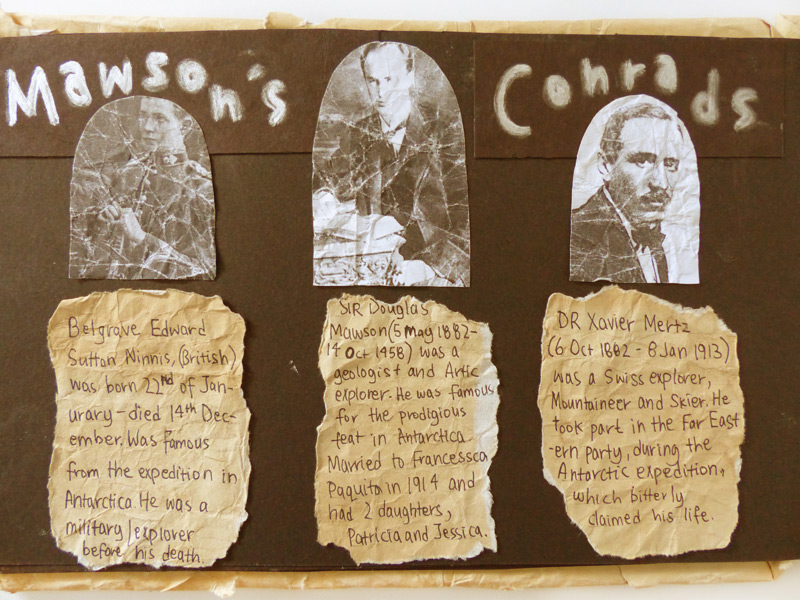 Mawson's Conrads
Belgrave Edward
Sutton Ninnis, (British)
was born 22nd of Jan-
urary - died 14th Dec-
ember. Was famous
from the expedition in
Antarctica. He was a
military/explorer
before his death.
SIR Douglas
Mawson (5 May 1882-
14 Oct 1458) was a
geologist and Artic
explorer. He was famous
for the prodigious
feat in Antarctica.
Married to Francessca
Paquita in 1914 and
had 2 daughters,
Patricia and Jessica.
DR Xavier Mertz
(6 Oct 1882 - 8 Jan 1913)
was a Swiss explorer,
Mountaineer and Skier. He
took part in the Far East
-ern party, during the
Antarctic expedition,
which bitterly
claimed his life.